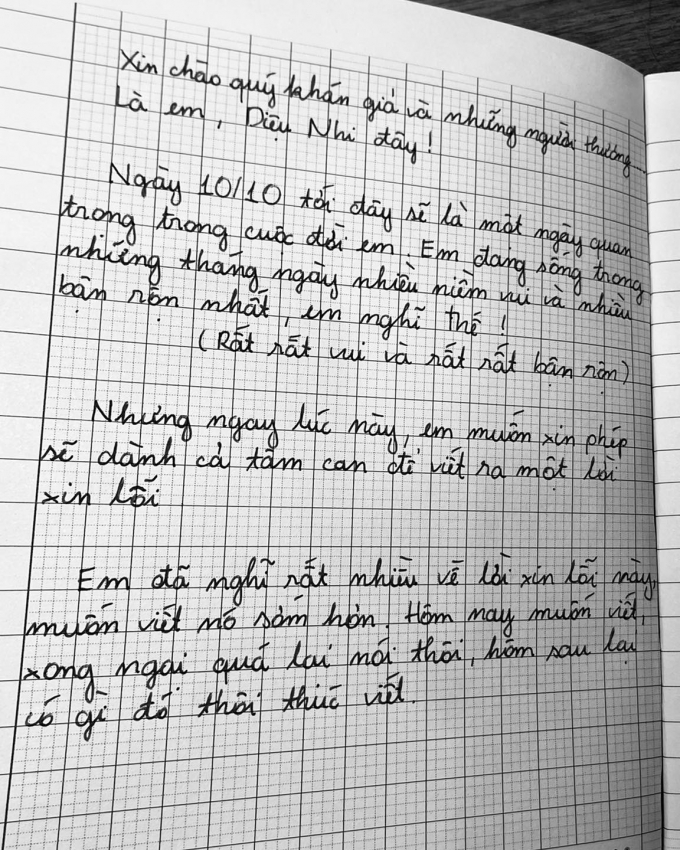 Xin chào quý khán giả và những người thương...
Là em, Diệu Nhi đây!
Ngày 10/10 tới đây sẽ là một ngày quan
trong trong cuộc đời em. Em đang sống trong
những tháng ngày nhiều niềm vui và nhiều
bận rộn nhất, em nghĩ thế!
(Rất rất vui và rất rất bận rộn)
Nhưng ngay lúc này, em muốn xin phép
sẽ dành cả tâm can để viết ra một lời
xin lỗi
Em đã nghĩ rất nhiều về lời xin lỗi này,
muốn viết nó sớm hơn. Hôm nay muốn viết,
xong ngại quá lại nói thôi, hôm sau lại
có gì đó thôi thúc viết.